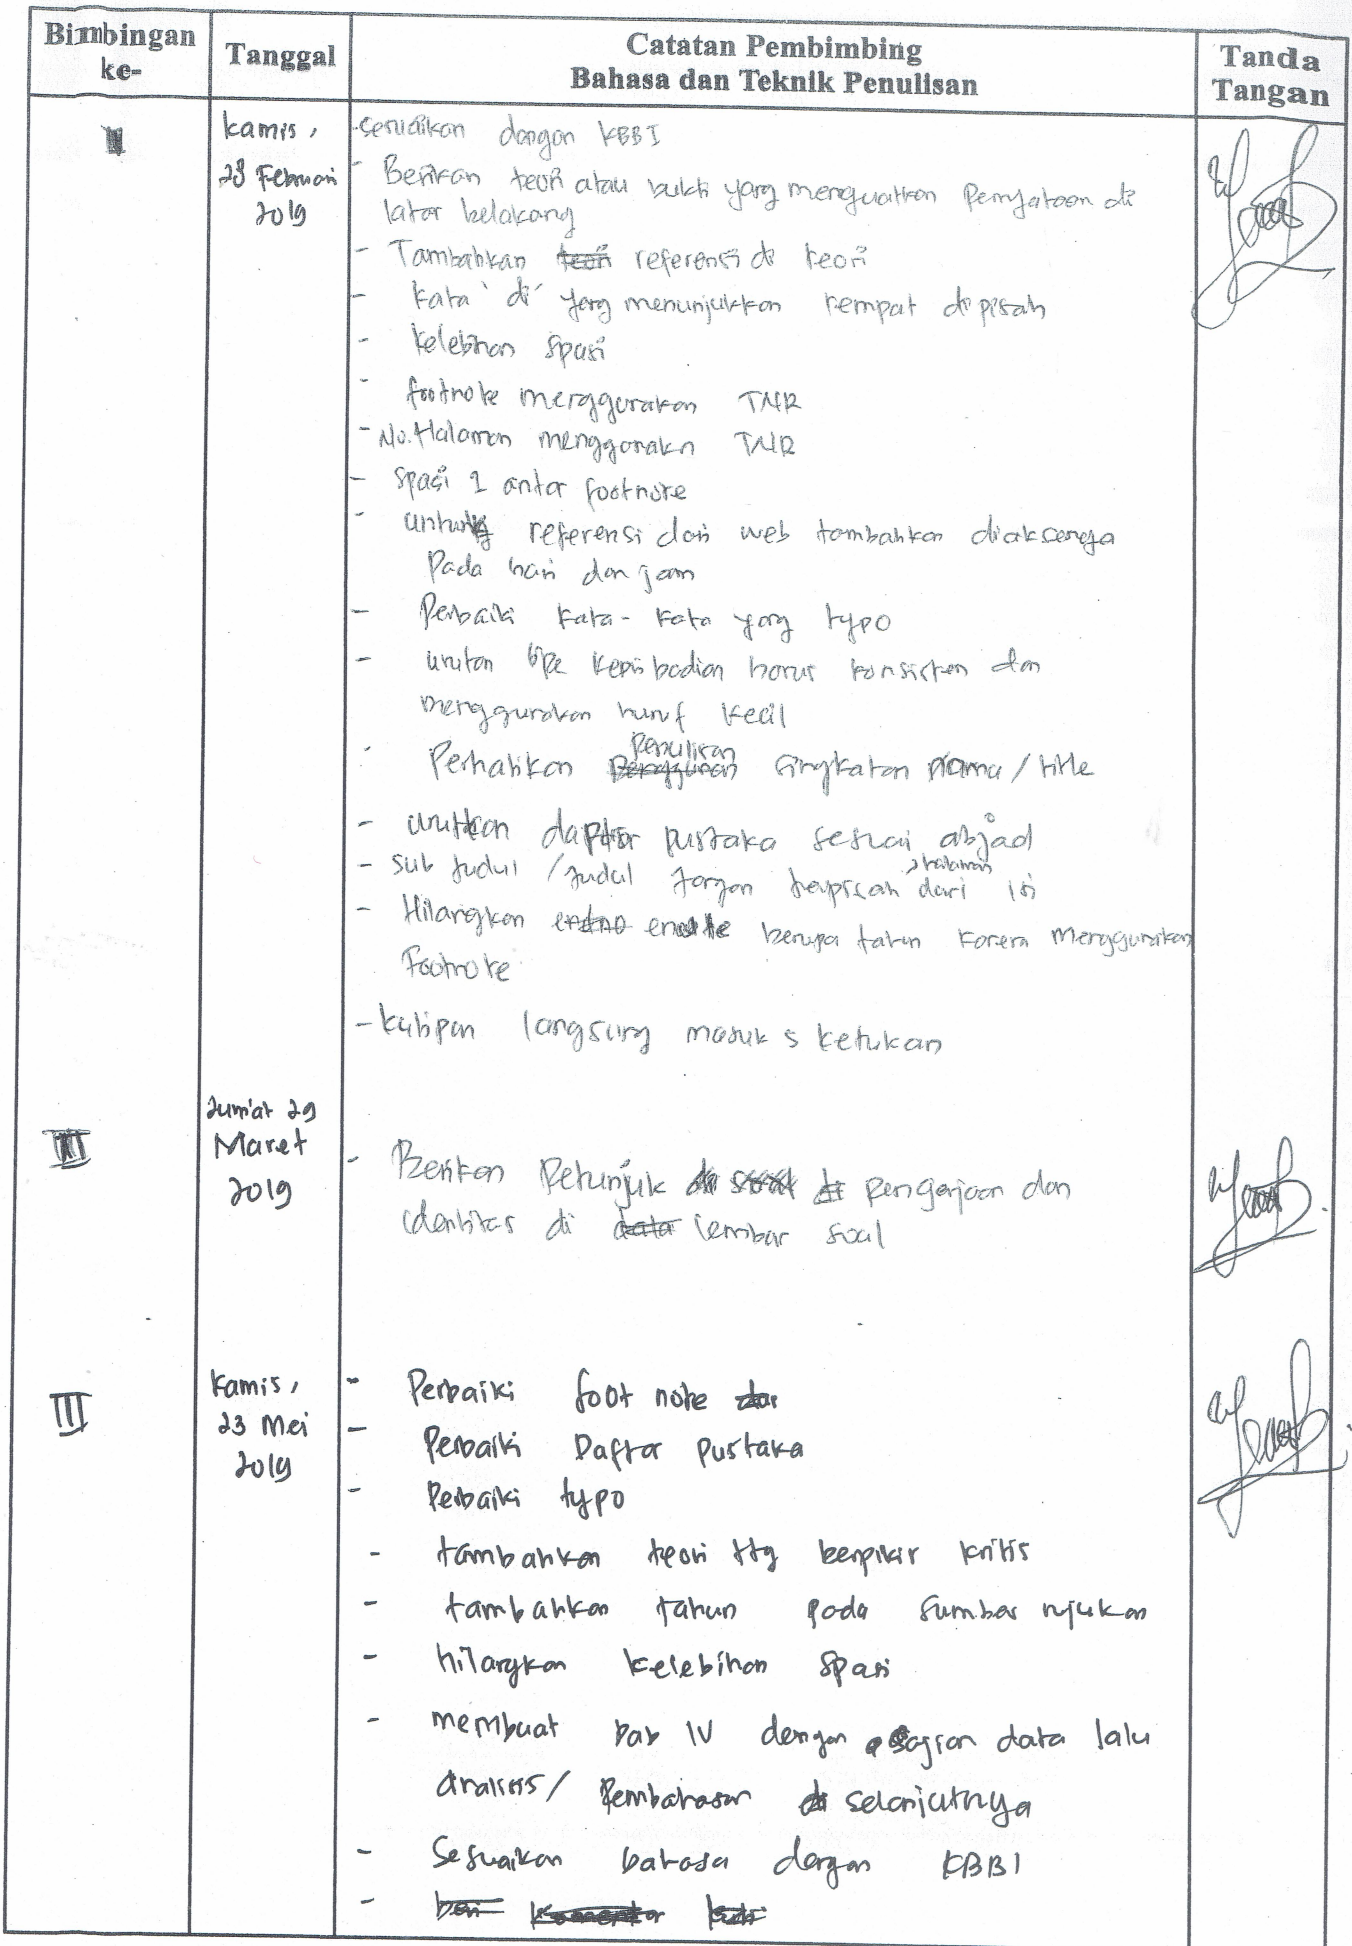 Bimbingan ke-
Tanggal
Catatan Pembimbing
Bahasa dan Teknik Penulisan
Tanda Tangan
Kamis,
28 Februari
2019
- Sesuaikan dengan KBBI
- Berikan teori atau bukti yang menguatkan pernyataan di
latar belakang
- Tambahkan teori referensi di teori
- Kata 'di' yang menunjukkan tempat dipisah
- Kelebihan spasi
- footnote menggunakan TNR
- No. Halaman menggunakn TNR
- Spasi 1 antar footnote
- untuk referensi dari web tambahkan diaksesnya
Pada hari dan jam
- Perbaiki kata-kata yang typo
- urutan tipe kepribadian harus konsisten dan
menggunakan huruf kecil
- Perhatikan penulisan singkatan nama/title
- urutkan daftar pustaka sesuai abjad
- Sub judul / judul jangan terpisah halaman dari isi
- Hilangkan berupa tahun karena menggunakan
Footnote
- Kutipan langsung masuk 5 ketukan
III
Jum'at 29
Maret
2019
- Berikan Petunjuk pengerjaan dan
identitas di data lembar soal
III
Kamis,
23 Mei
2019
- Perbaiki foot note dan
- Perbaiki Daftar Pustaka
- Perbaiki typo
- tambahkan teori ttg berpikir kritis
- tambahkan tahun pada sumber rujukan
- hilangkan kelebihan spasi
- membuat bab IV dengan sajian data lalu
analisis / Pembahasan di selanjutnya
- Sesuaikan bahasa dengan KBBI